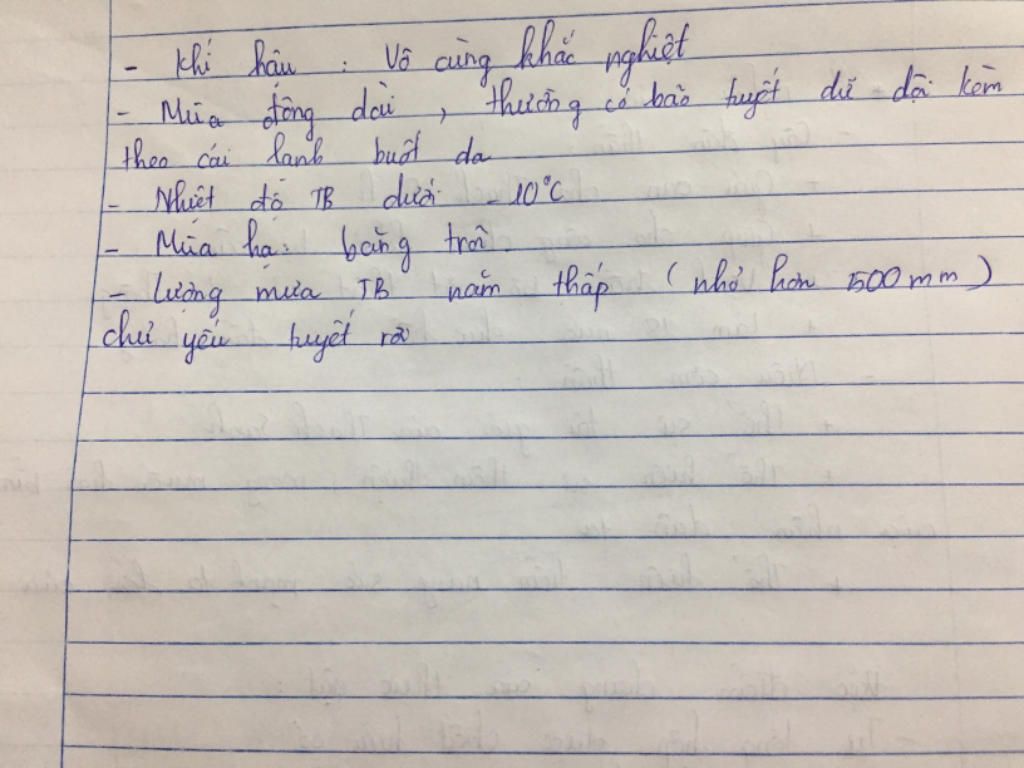 - Khí hậu : Vô cùng khắc nghiệt
- Mùa đông dài , thường có bão tuyết dữ dội kèm
theo cái lạnh buốt da
- Nhiệt độ TB dưới -10°C
- Mùa hạ: băng trôi
- Lượng mưa TB năm thấp ( nhỏ hơn 500 mm )
chủ yếu tuyết rơi